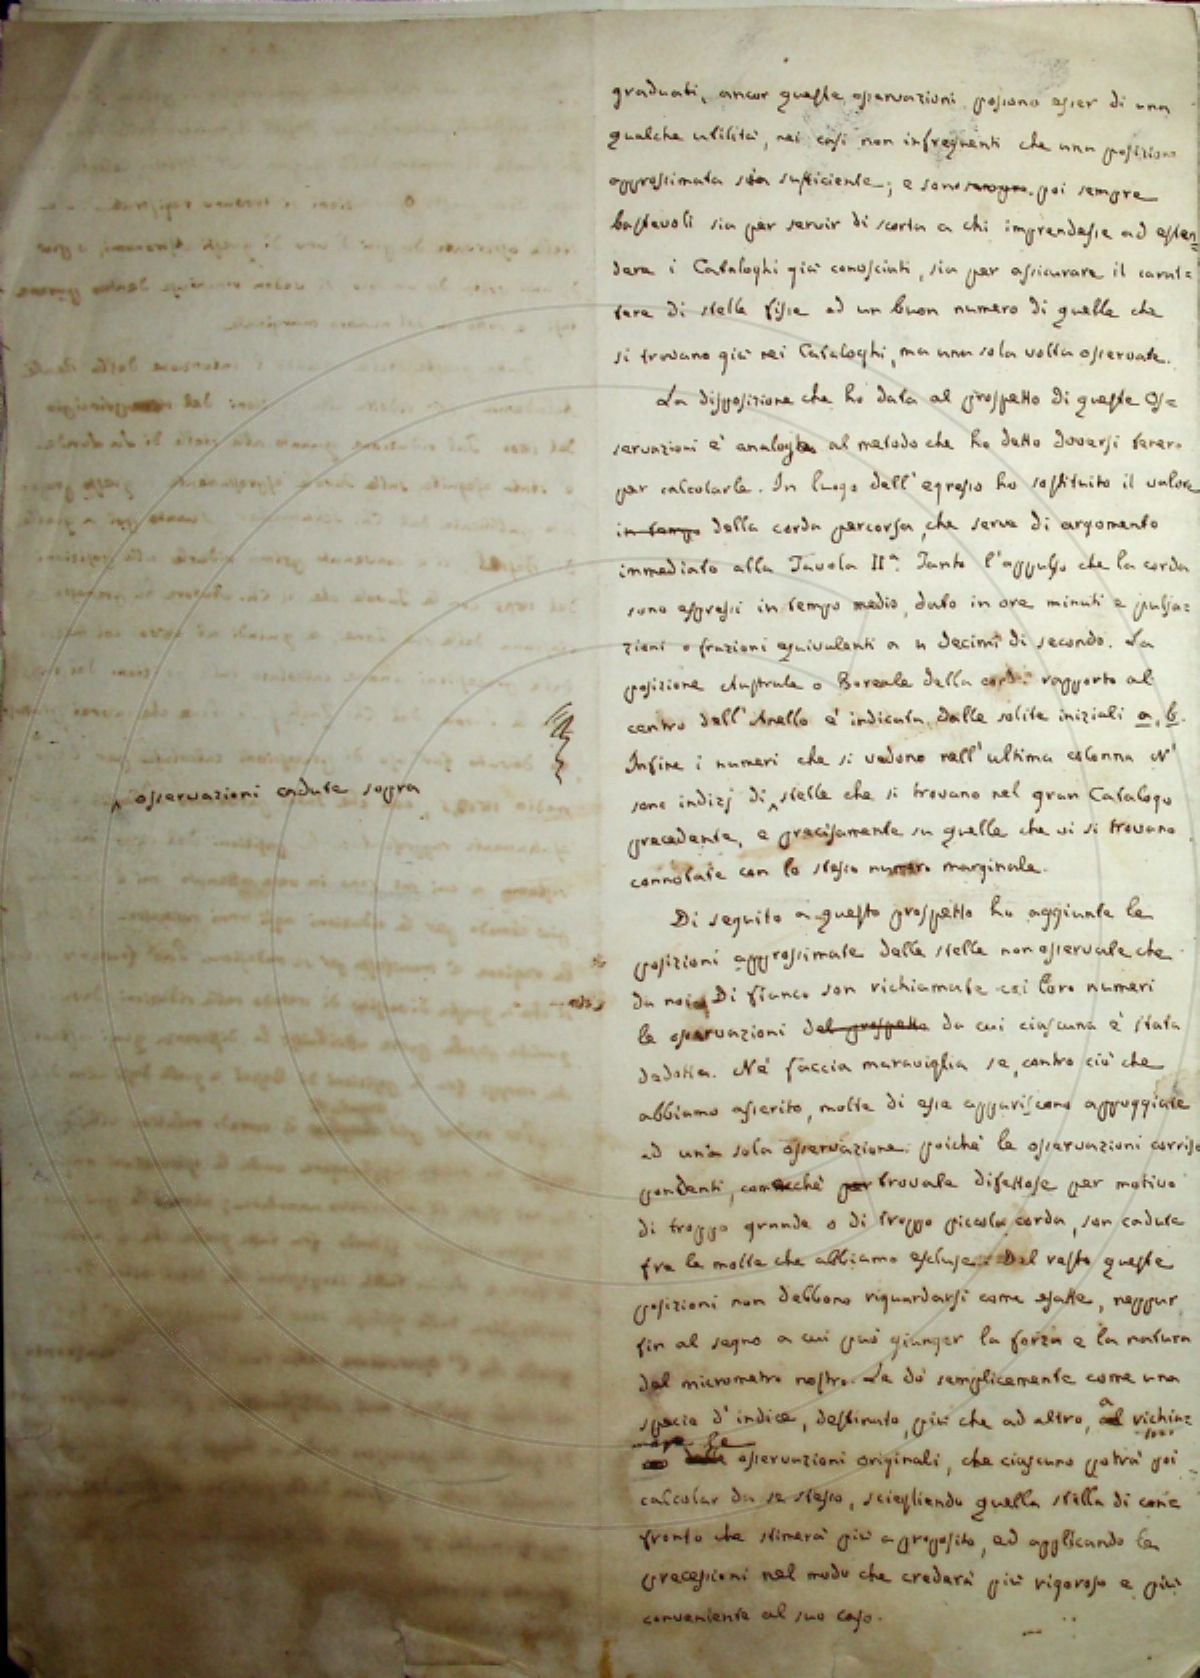 graduati, ancor queste osservazioni possono esser di una
qualche utilità, nei casi non infrequenti che una posizione
approssimata sia sufficiente; e sono poi sempre
bastevoli sia per servir di scorta a chi imprendesse ad esten=
dere i Cataloghi già conosciuti, sia per assicurare il carat=
tere di stelle fisse ad un buon numero di quelle che
si trovano già nei Cataloghi, ma una sola volta osservate.
La disposizione che ho data al prospetto di queste Os=
servazioni è analoga al metodo che ho detto doversi tenere
per calcolarle. In luogo dell'egresso ho sostituito il valore
in tempo della corda percorsa, che serve di argomento
immediato alla Tavola IIª. Tanto l'appulso che la corda
sono espressi in tempo medio, dato in ore minuti e pulsa=
zioni o frazioni equivalenti a 4 decimi di secondo. La
posizione Australe o Boreale della corda rapporto al
centro dell'Anello è indicata dalle solite iniziali a, b.
Infine i numeri che si vedono nell'ultima colonna N'
sono indizj di ‸ stelle che si trovano nel gran Catalogo
‸ osservazioni cadute sopra
precedente, e precisamente su quelle che vi si trovano
connotate con lo stesso numero marginale.
Di seguito a questo prospetto ho aggiunte le
posizioni approssimate delle stelle non osservate che
da noi. Di fianco son richiamate coi loro numeri
le osservazioni del prospetto da cui ciascuna è stata
dedotta. Nè faccia maraviglia se, contro ciò che
abbiamo asserito, molte di esse appariscono appoggiate
ad una sola osservazione: poichè le osservazioni corris
pondenti, comechè per trovate difettose per motivo
di troppo grande o di troppo piccola corda, son cadute
fra le molte che abbiamo escluse. Del resto queste
posizioni non debbono riguardarsi come esatte, neppur
fin al segno a cui può giunger la forza e la natura
del micrometro nostro. Le dò semplicemente come una
specie d'indice, destinato, più che ad altro, a richia=
mare le osservazioni originali, che ciascuno potrà poi
calcolar da se stesso, sciegliendo quella stella di con=
fronto che stimerà più a proposito, ed applicando le
precessioni nel modo che crederà più rigoroso e più
conveniente al suo caso.